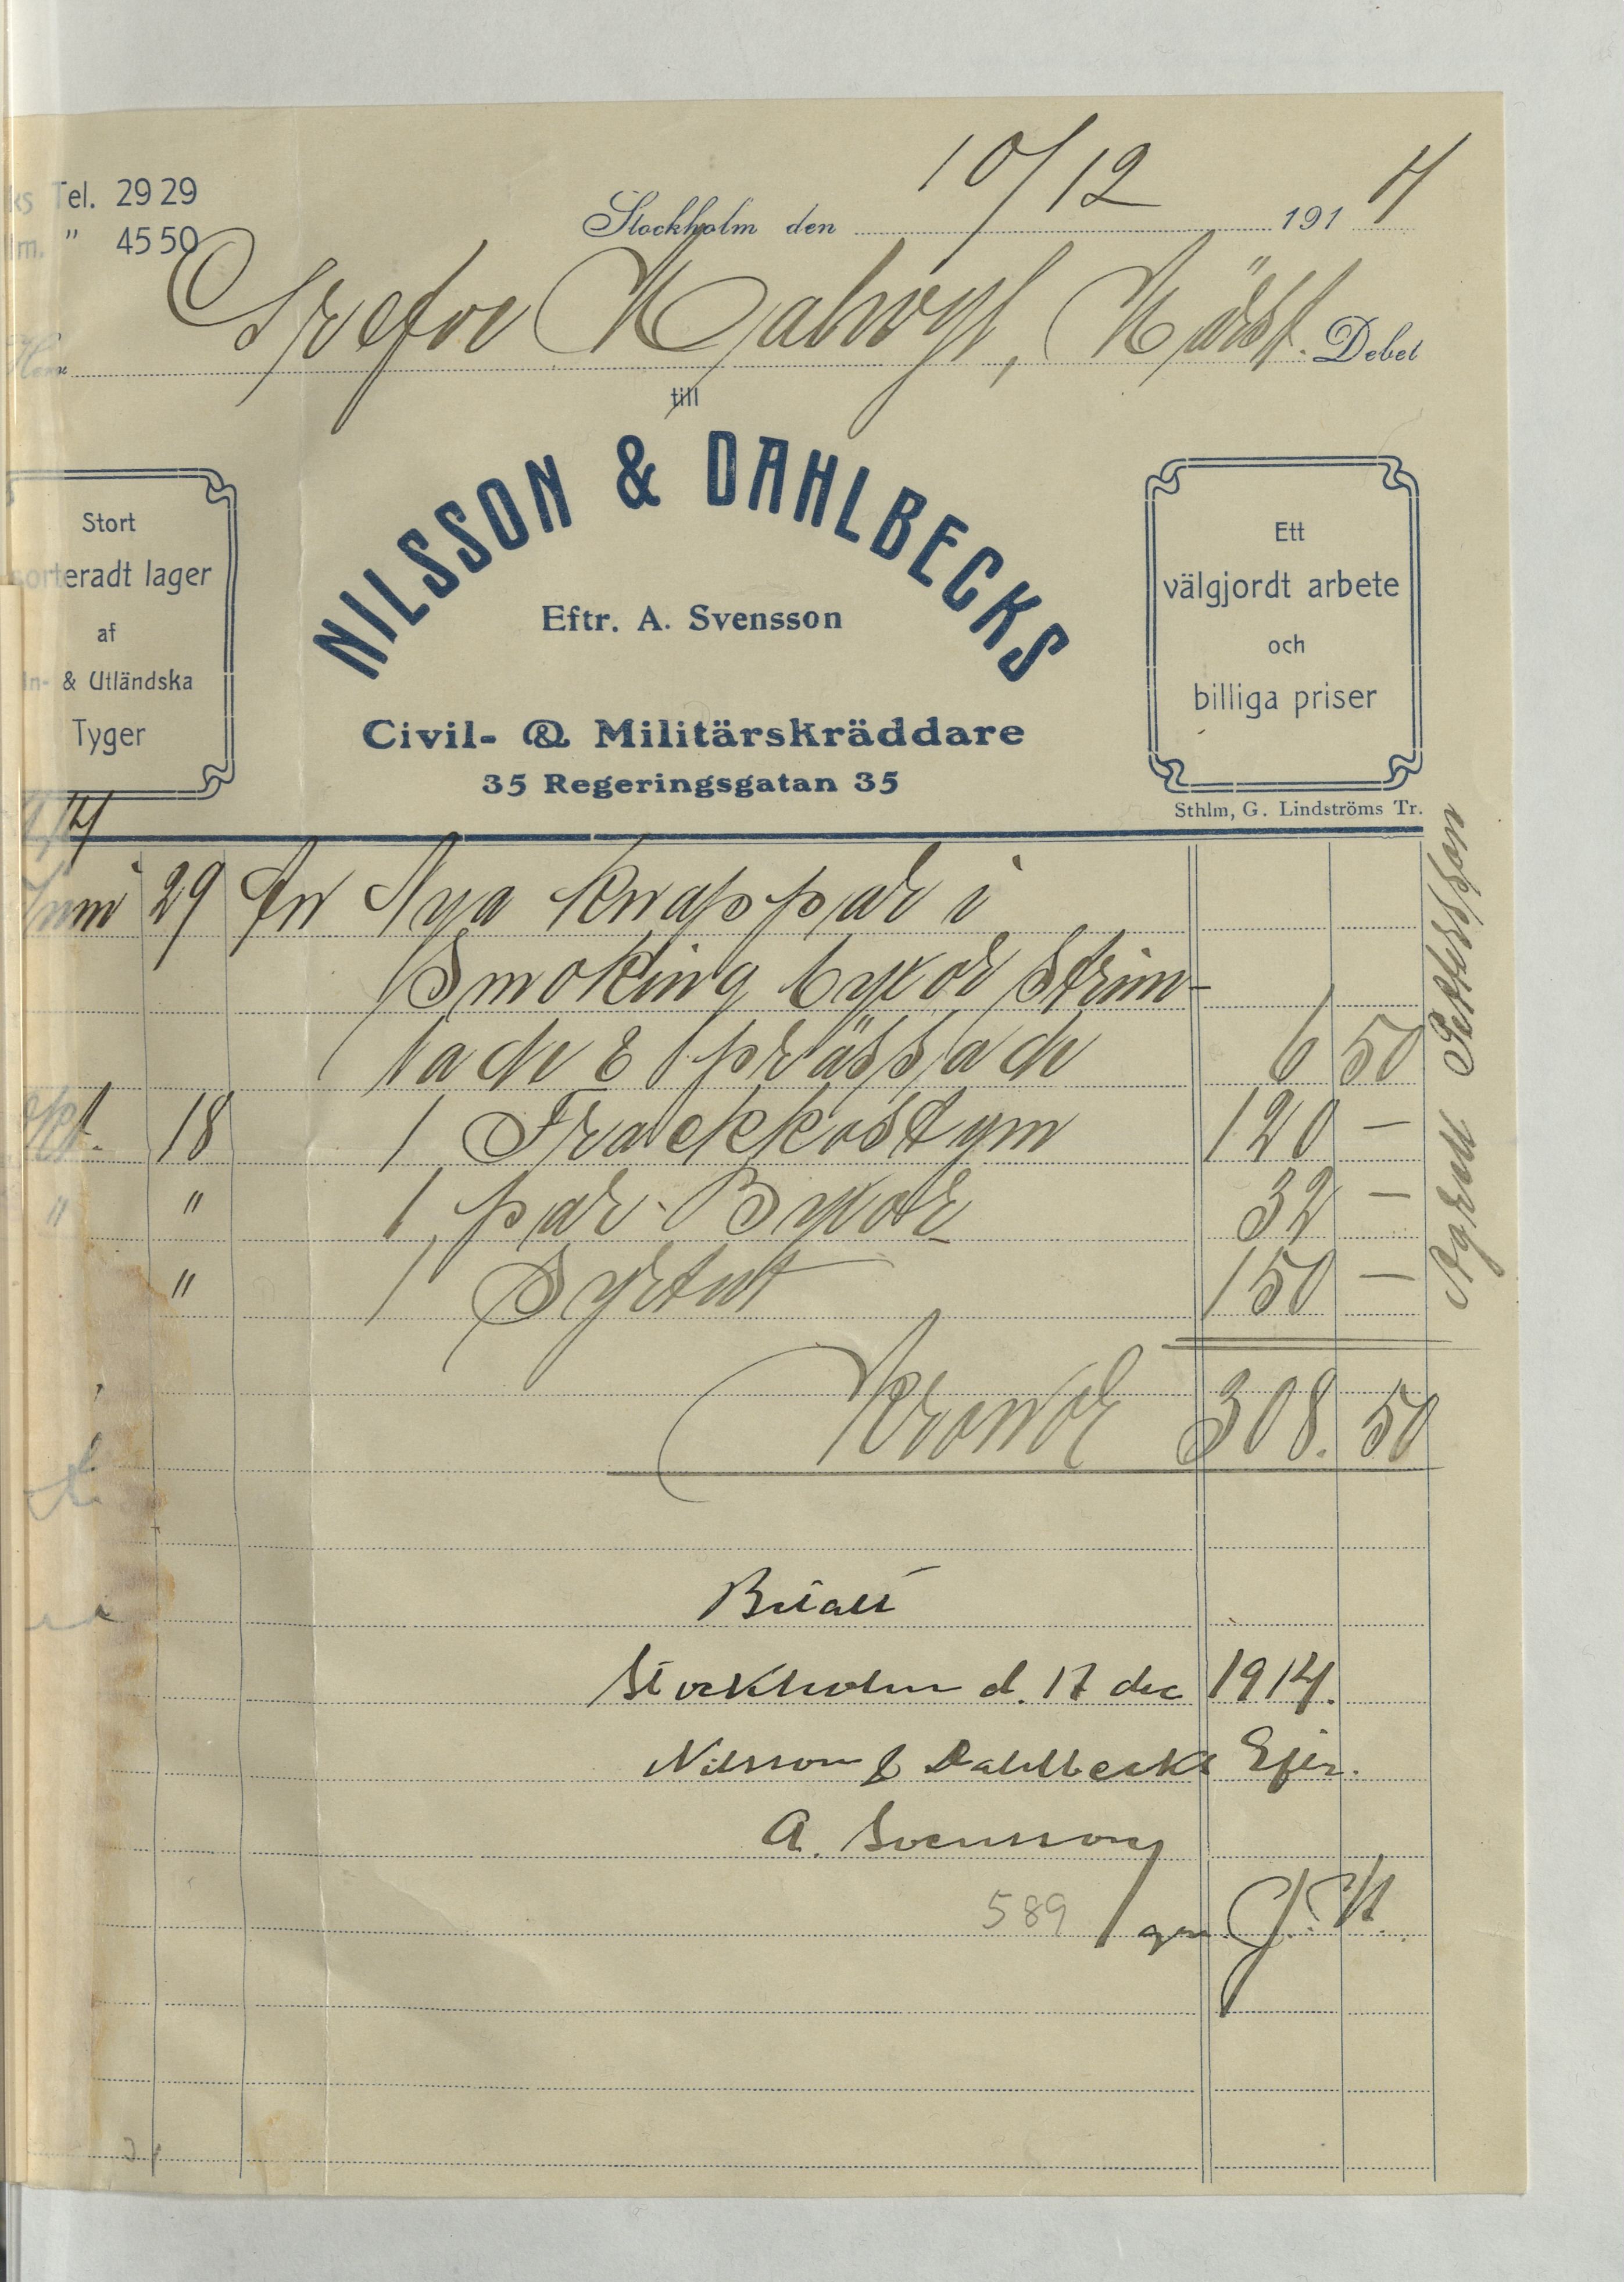 Tel. 29 29
" 45 50
Stockholm den 10/12 1914
Grefve Hallwyl, Härst. Debet
till
NILSSON & DAHLBECKS
Eftr. A. Svensson
Civil- & Militärskräddare
35 Regeringsgatan 35
Stort
sorteradt lager
af
In- & Utländska
Tyger
Ett
välgjordt arbete
och
billiga priser
Sthlm, G. Lindströms Tr.
Juni 29 An Nya knappar i
Smoking byxor
& prässade 6 50
Okt. 18 1 Frackkostym 120 —
" " 1 par Byxor 32 —
" 1 Syrtut 150 —
Kronor 308. 50
Betalt
Stockholm d. 17 dec 1914.
Nilsson & Dahlbecks Eftr.
A. Svensson
589
Agrell Pettersson